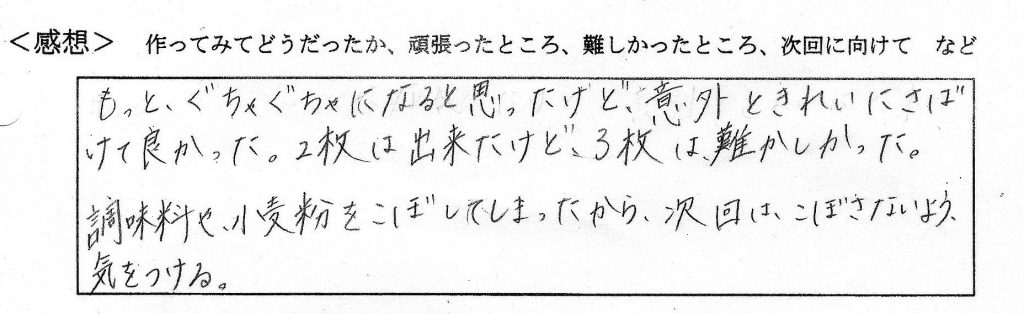 ＜感想＞ 作ってみてどうだったか、頑張ったところ、難しかったところ、次回に向けて など
もっと、ぐちゃぐちゃになると思ったけど、意外ときれいにさば
けて良かった。2枚は出来たけど、3枚は、難かしかった。
調味料や、小麦粉をこぼしてしまったから、次回は、こぼさないよう、
気をつける。